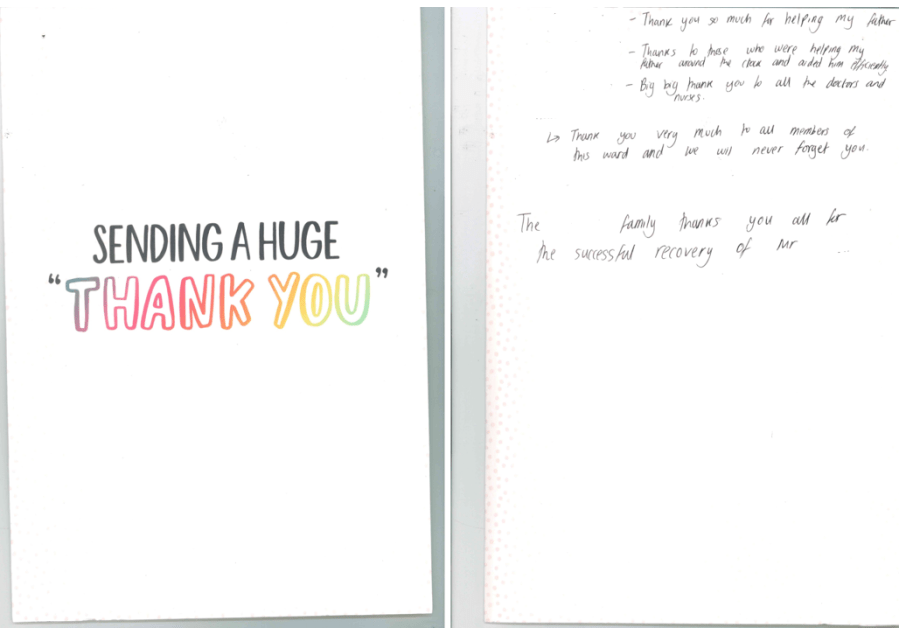 SENDING A HUGE
“THANK YOU”
- Thank you so much for helping my father
- Thanks to those who were helping my
father around the clock and aided him efficiently
- Big big thank you to all the doctors and
nurses.
↳ Thank you very much to all members of
this ward and we will never forget you.
The family thanks you all for
the successful recovery of Mr ...